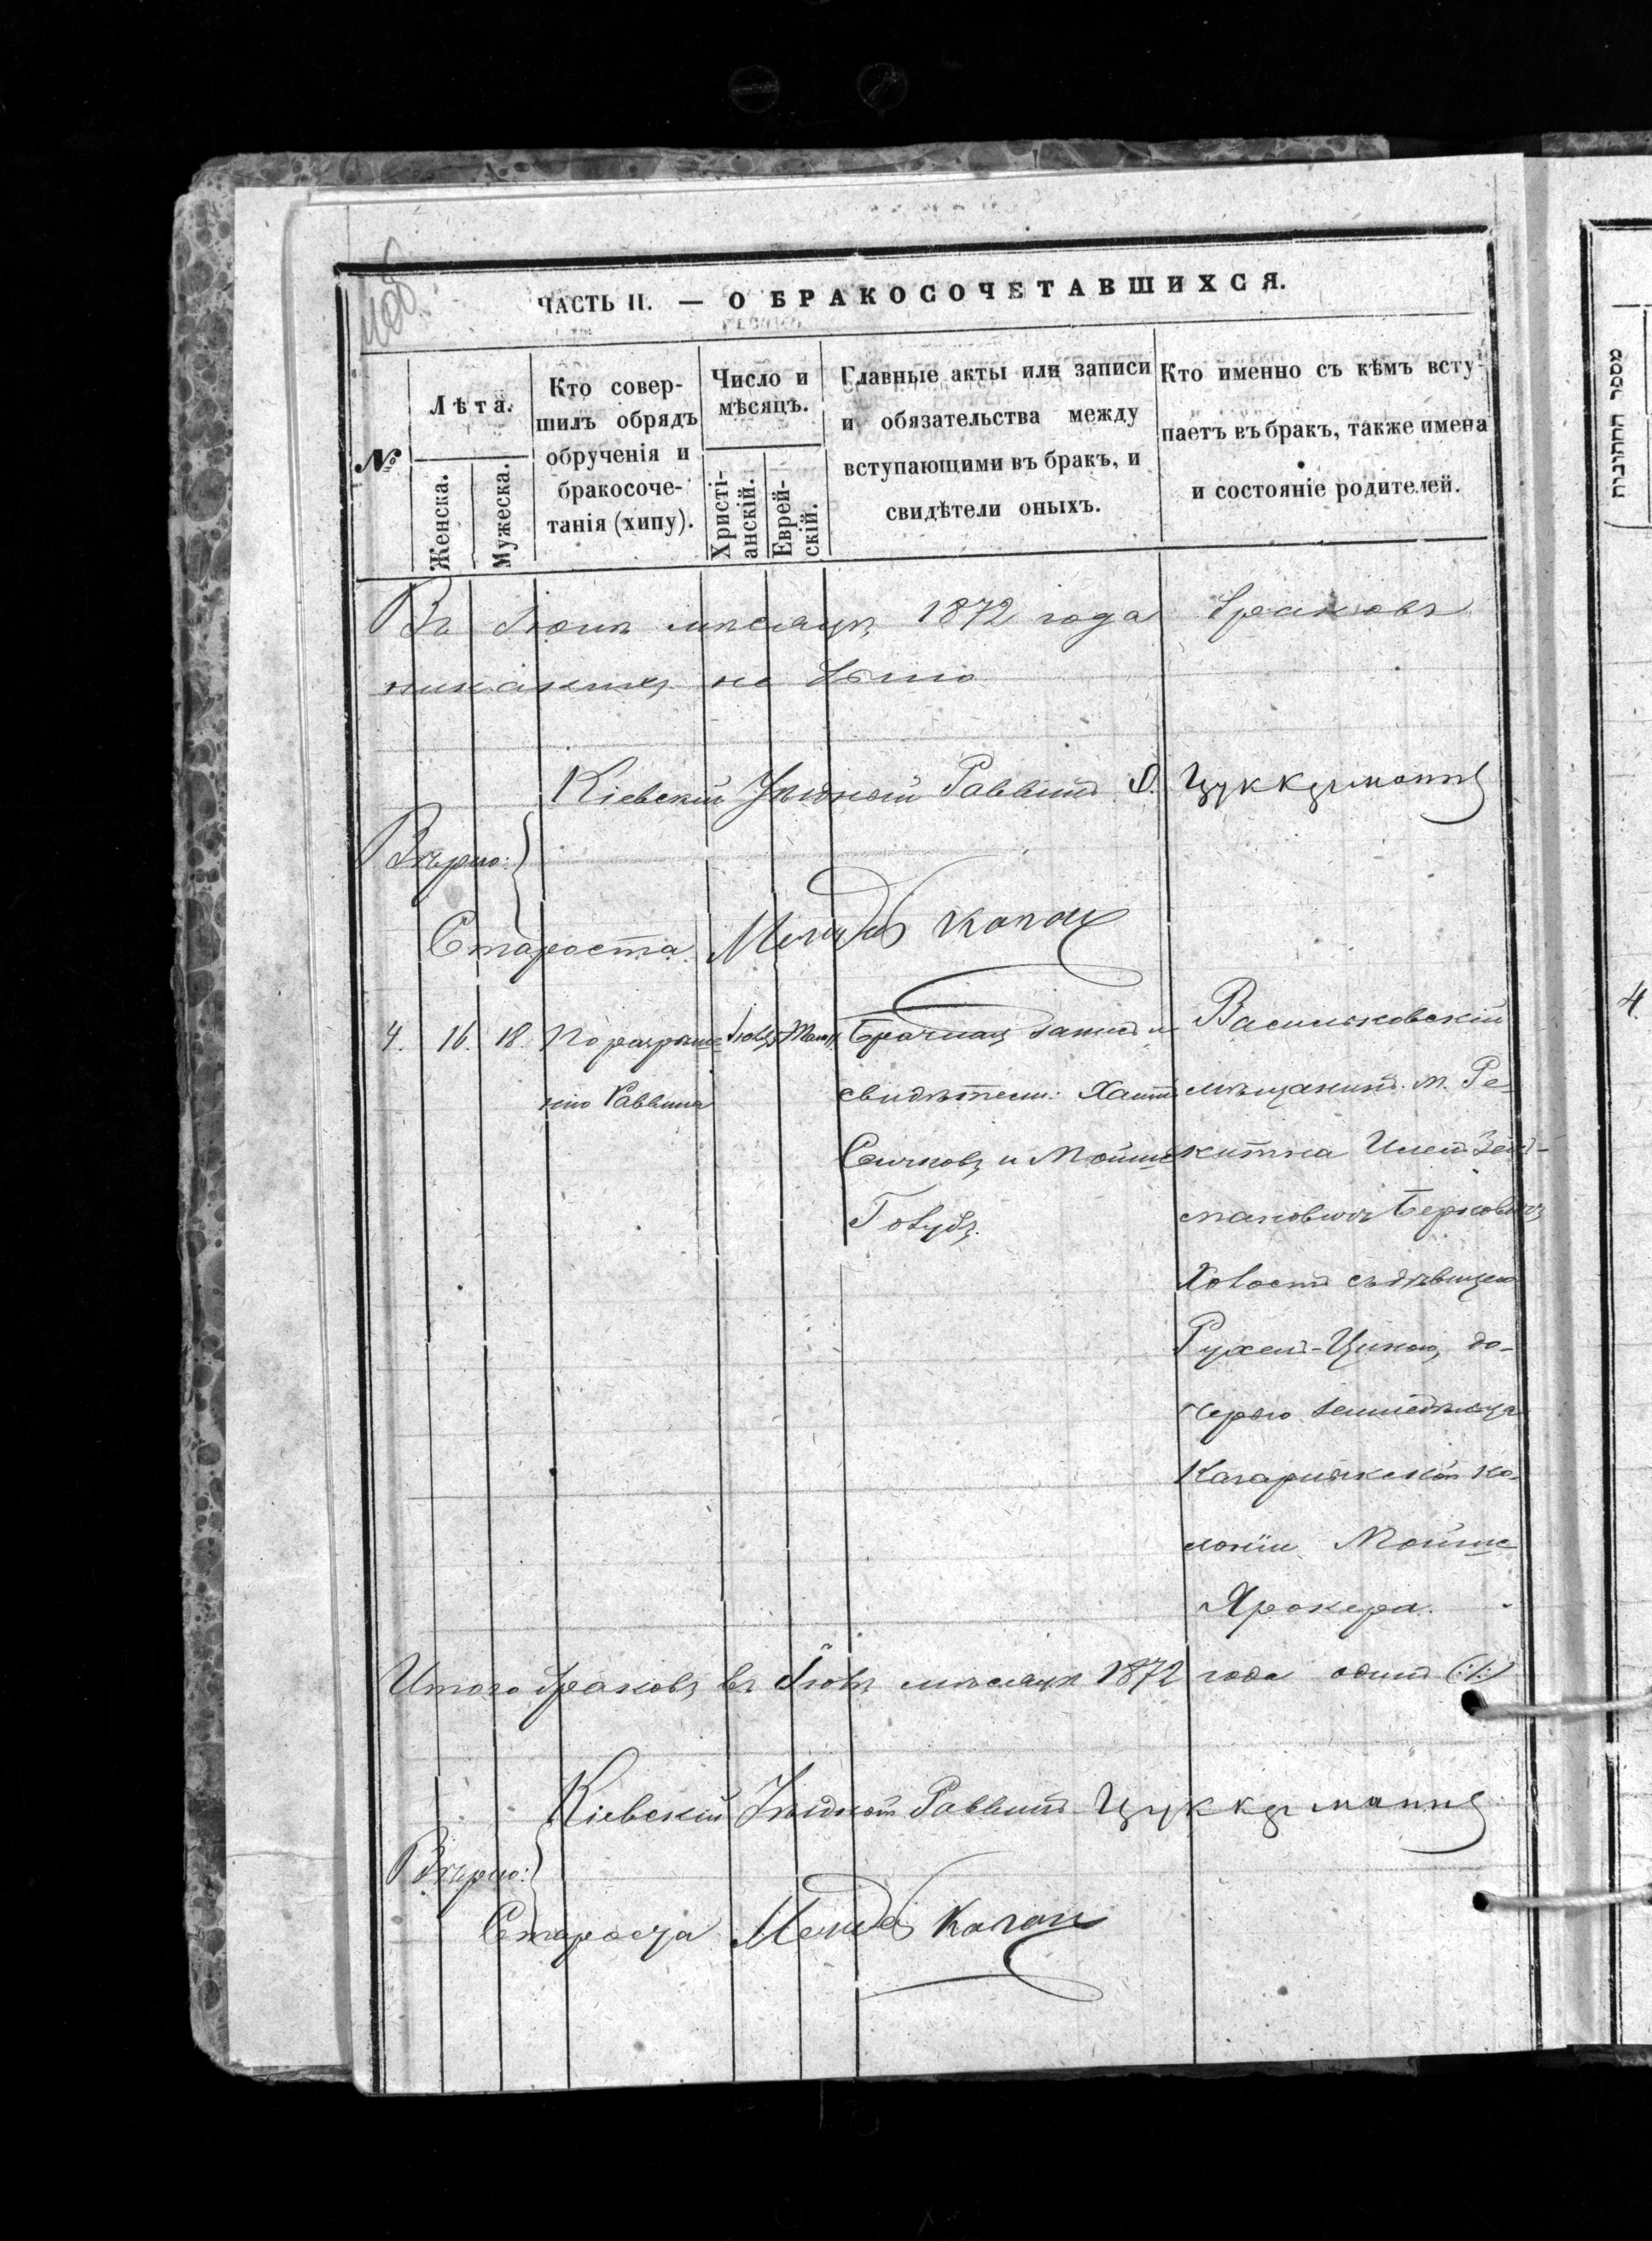 ЧАСТЬ II. — О БРАКОСОЧЕТАВШИХСЯ.
№
Лѣта.
Женска.
Мужеска.
Кто совер-
шилъ обрядъ
обрученія и
бракосоче-
танія (хипу).
Число и
мѣсяцъ.
Христі-
анскій.
Еврей-
скій.
Главные акты или записи
и обязательства между
вступающими въ бракъ, и
свидѣтели оныхъ.
Кто именно съ кѣмъ всту-
паетъ въ бракъ, также имена
и состояніе родителей.
מספר החתונות
Въ Іюнѣ мѣсяцѣ 1872 года браковъ
никакихъ не было
Кіевскій Уѣздный Раввинъ Цуккерманнъ
Вѣрно:
Староста Каганъ
4. 16. 18. По разрѣше
нію Раввина
Брачная запись и
свидѣтели: Хаимъ
и Мойше
Голубъ.
Васильковскій
мѣщанинъ м. Ре
китна
мановичъ Берковичъ
Ховостъ съ дѣвицею
Рухель-Циною, до-
черью земледѣльца
Кагарлыкской ко
лоніи Мойше
Ярокера.
Итого браковъ въ Іюлѣ мѣсяцѣ 1872 года одинъ (:1:)
Кіевскій Уѣздный Раввинъ Цуккерманнъ
Вѣрно:
Староста Каганъ
4